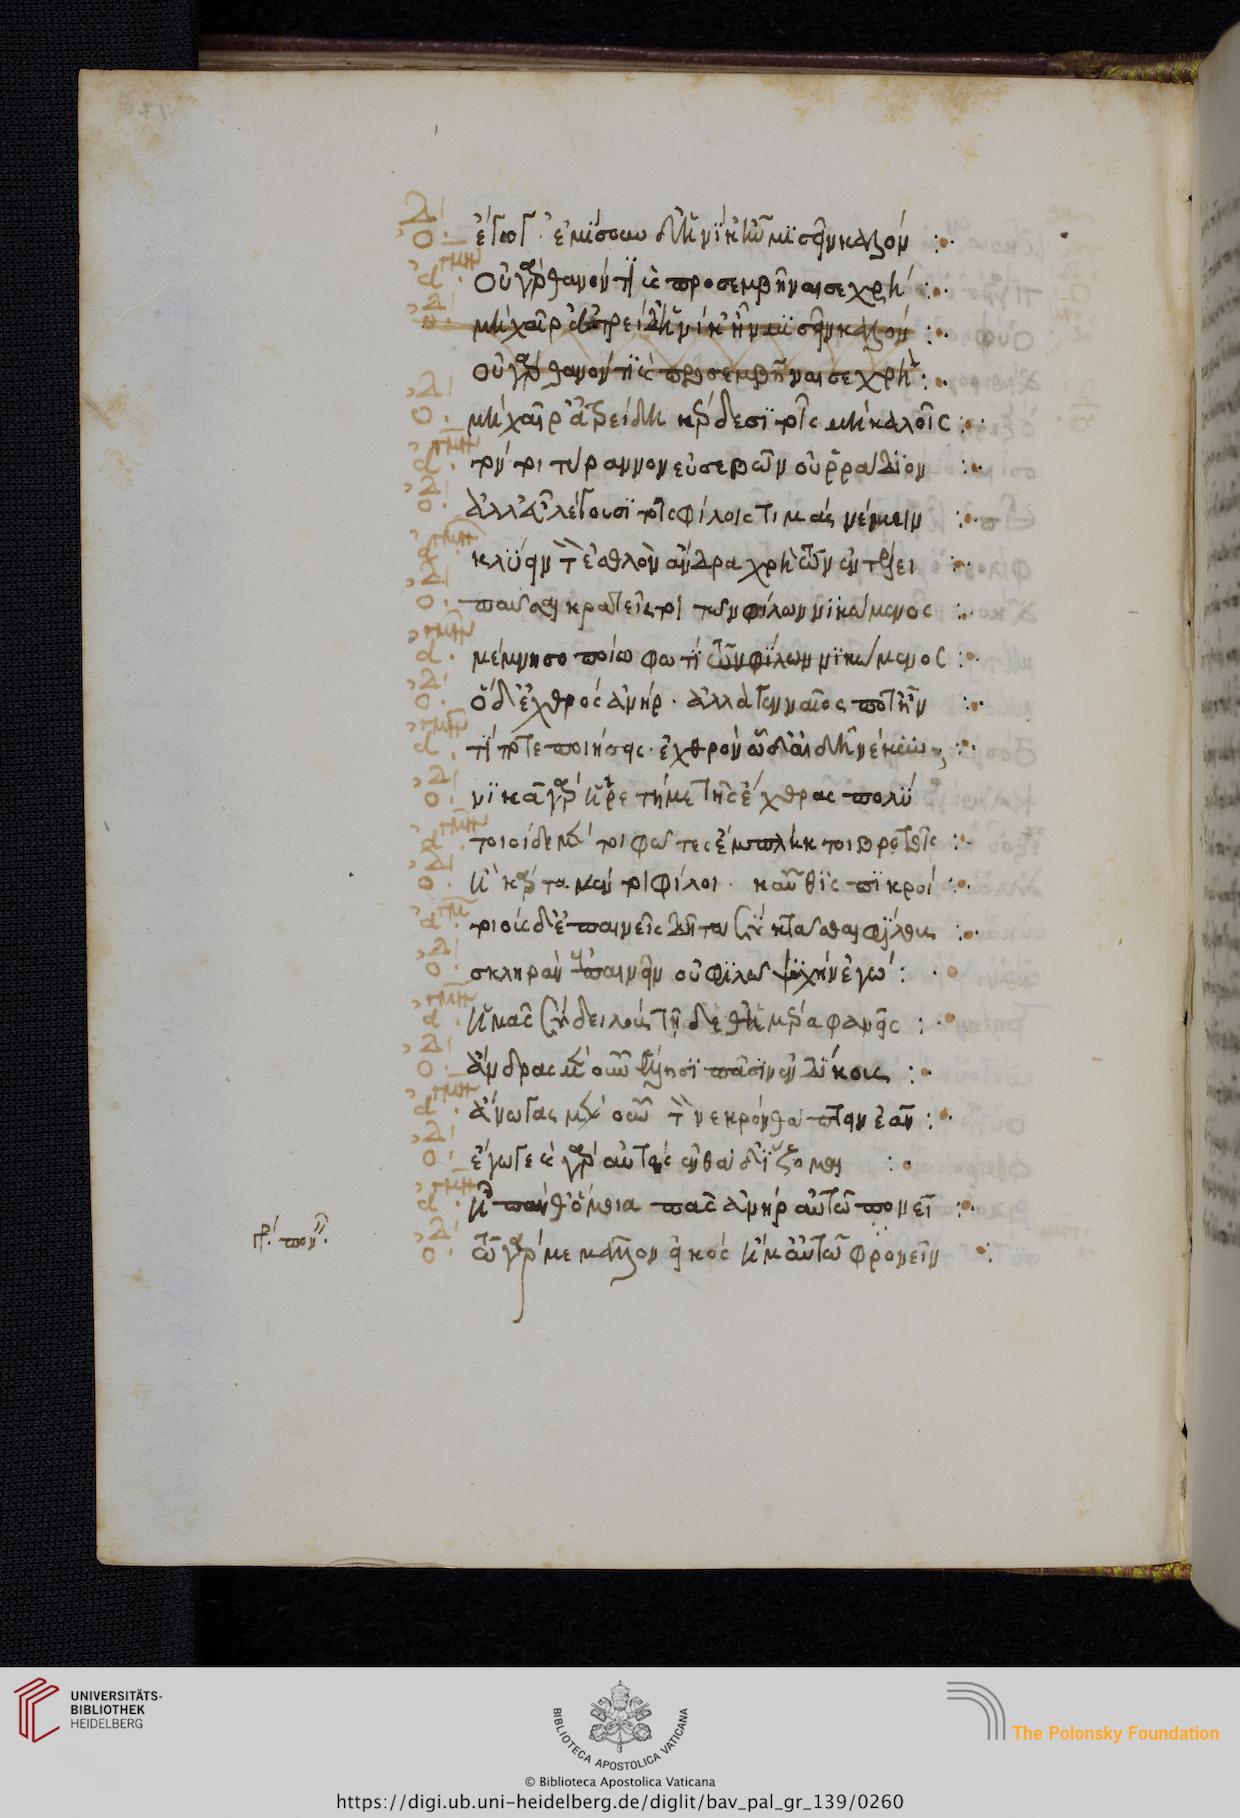 ἔγωγ'· ἐμίσουν δ' ἡνίκ' ἦν μισεῖν καλόν
οὐ γὰρ θανόντι καὶ προσεμβῆναί σε χρή
μὴ χαῖρ' ἀτρείδη ἡνίκ' ἦν μισεῖν καλόν
οὐ γὰρ θανόντι καὶ προσεμβῆναί σε χρή
μὴ χαῖρ' ἀτρείδη κέρδεσι τοῖς μὴ καλοῖς
τόν τοι τύραννον εὐσεβεῖν οὐ ῥάδιον
ἀλλ' εὖ λέγουσι τοῖς φίλοις τιμὰς νέμειν
κλύειν τὸν ἐσθλὸν ἄνδρα χρὴ τῶν ἐν τέλει
παῦσαι κρατεῖς τοι τῶν φίλων νικώμενος
μέμνησο ποίω φωτὶ τῶν φίλων νικώμενος
ὅδ' ἐχθρὸς ἀνήρ· ἀλλὰ γενναῖος ποτ' ἦν
τί ποτε ποιήσεις· ἐχθρὸν ὧδ' αἰδῆ νέκυν
νικᾶ γὰρ ἡ ἀρετή με τῆς ἔχθρας πολύ
τοιοίδε μέν τοι φῶτες ἔμπληκτοι βροτοῖς
ἦ κάρτα φίλοι· καὖθις πικροί
τοιούσδ' ἐπαινεῖς δῆτα σὺ κτᾶσθαι φίλους
σκληρὰν ἐπαινεῖν οὐ φιλῶ ψυχὴν ἐγώ
ἡμᾶς σὺ δειλοὺς τῆδε θἠμέρα φανεῖς
ἄνδρας μὲν οὖν ἕλλησι πᾶσιν ἐνδίκους
ἄνωγας μὲν οὖν τὸν νεκρὸν θάπτειν ἐᾶν
ἔγωγε καὶ γὰρ αὐτὸς ἐνθάδ' ἵξομαι
ἦ πάνθ' ὅμοια πᾶς ἀνὴρ αὑτῶ πονεῖ
γρ. πον
τῶ γάρ με μᾶλλον εἰκὸς ἢ 'μαυτῶ φρονεῖν
UNIVERSITÄTS-
BIBLIOTHEK
HEIDELBERG
BIBLIOTECA APOSTOLICA VATICANA
The Polonsky Foundation
© Biblioteca Apostolica Vaticana
https://digi.ub.uni-heidelberg.de/diglit/bav_pal_gr_139/0260